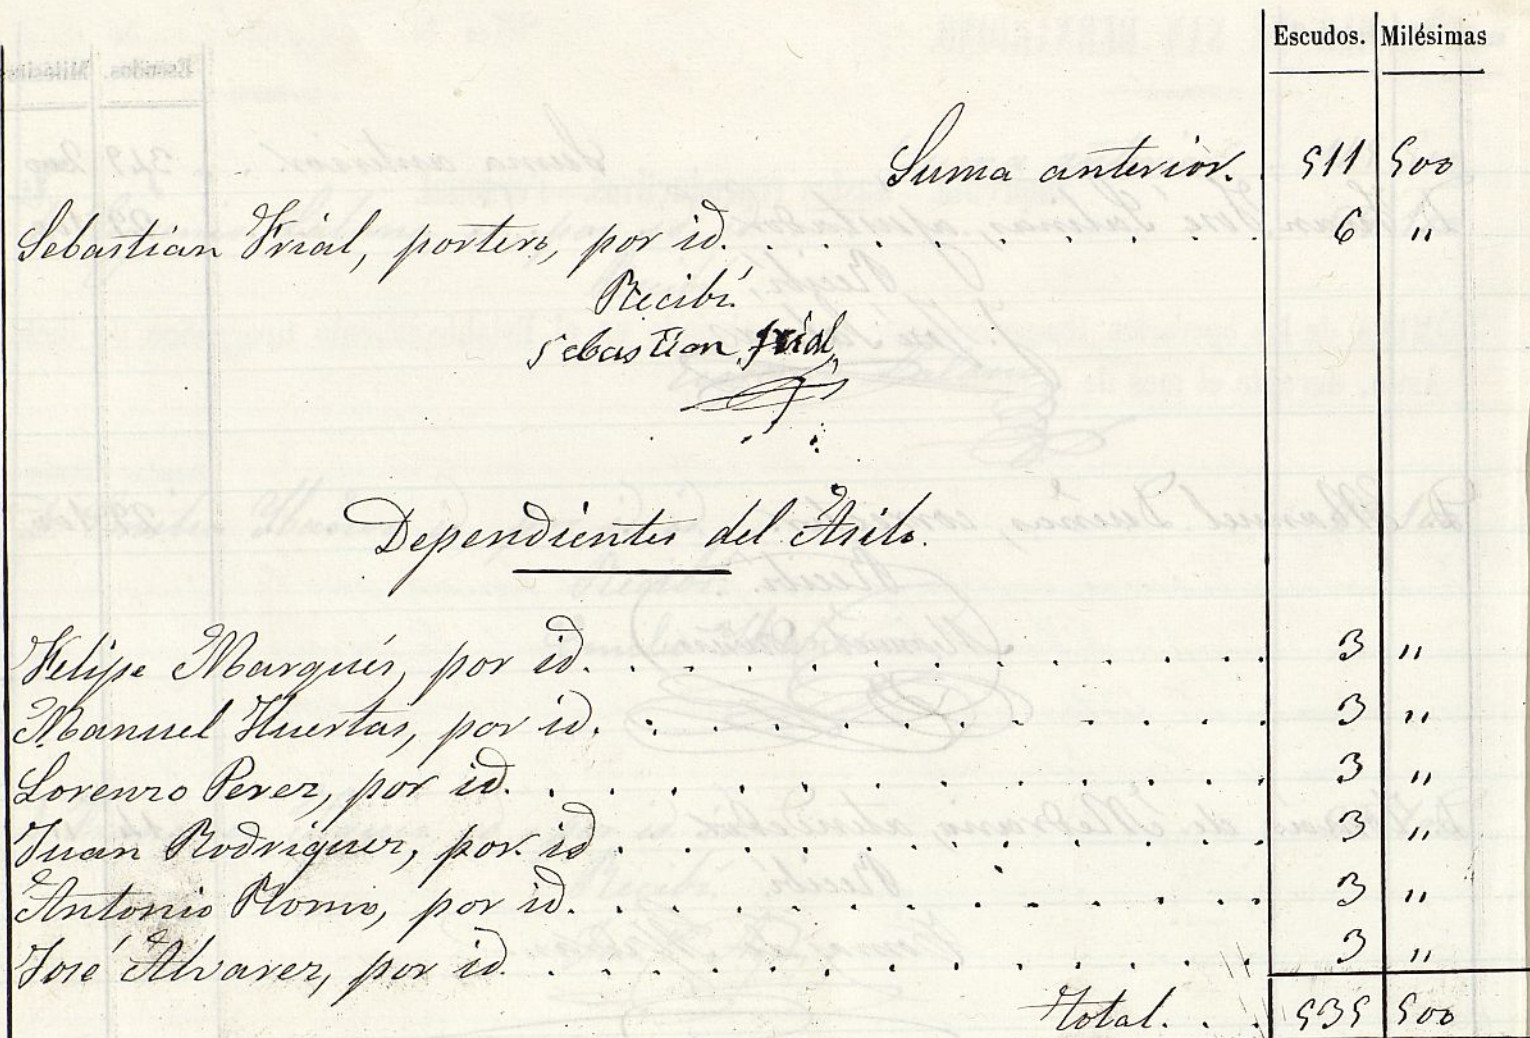 Escudos. Milésimas
Suma anterior. 511 500
Sebastian Frial, portero, por id. . . . . . . . . . 6 "
Recibí.
Sebastian frial
Dependientes del Asilo.
Felipe Marqués, por id. . . . . . . . . . . . 3 "
Manuel Huertas, por id. . . . . . . . . . . 3 "
Lorenzo Perez, por id. . . . . . . . . . . . . 3 "
Juan Rodriguez, por id . . . . . . . . . . . . 3 "
Antonio Romo, por id. . . . . . . . . . . . 3 "
José Alvarez, por id. . . . . . . . . . . . . 3 "
Total. . . 535 500